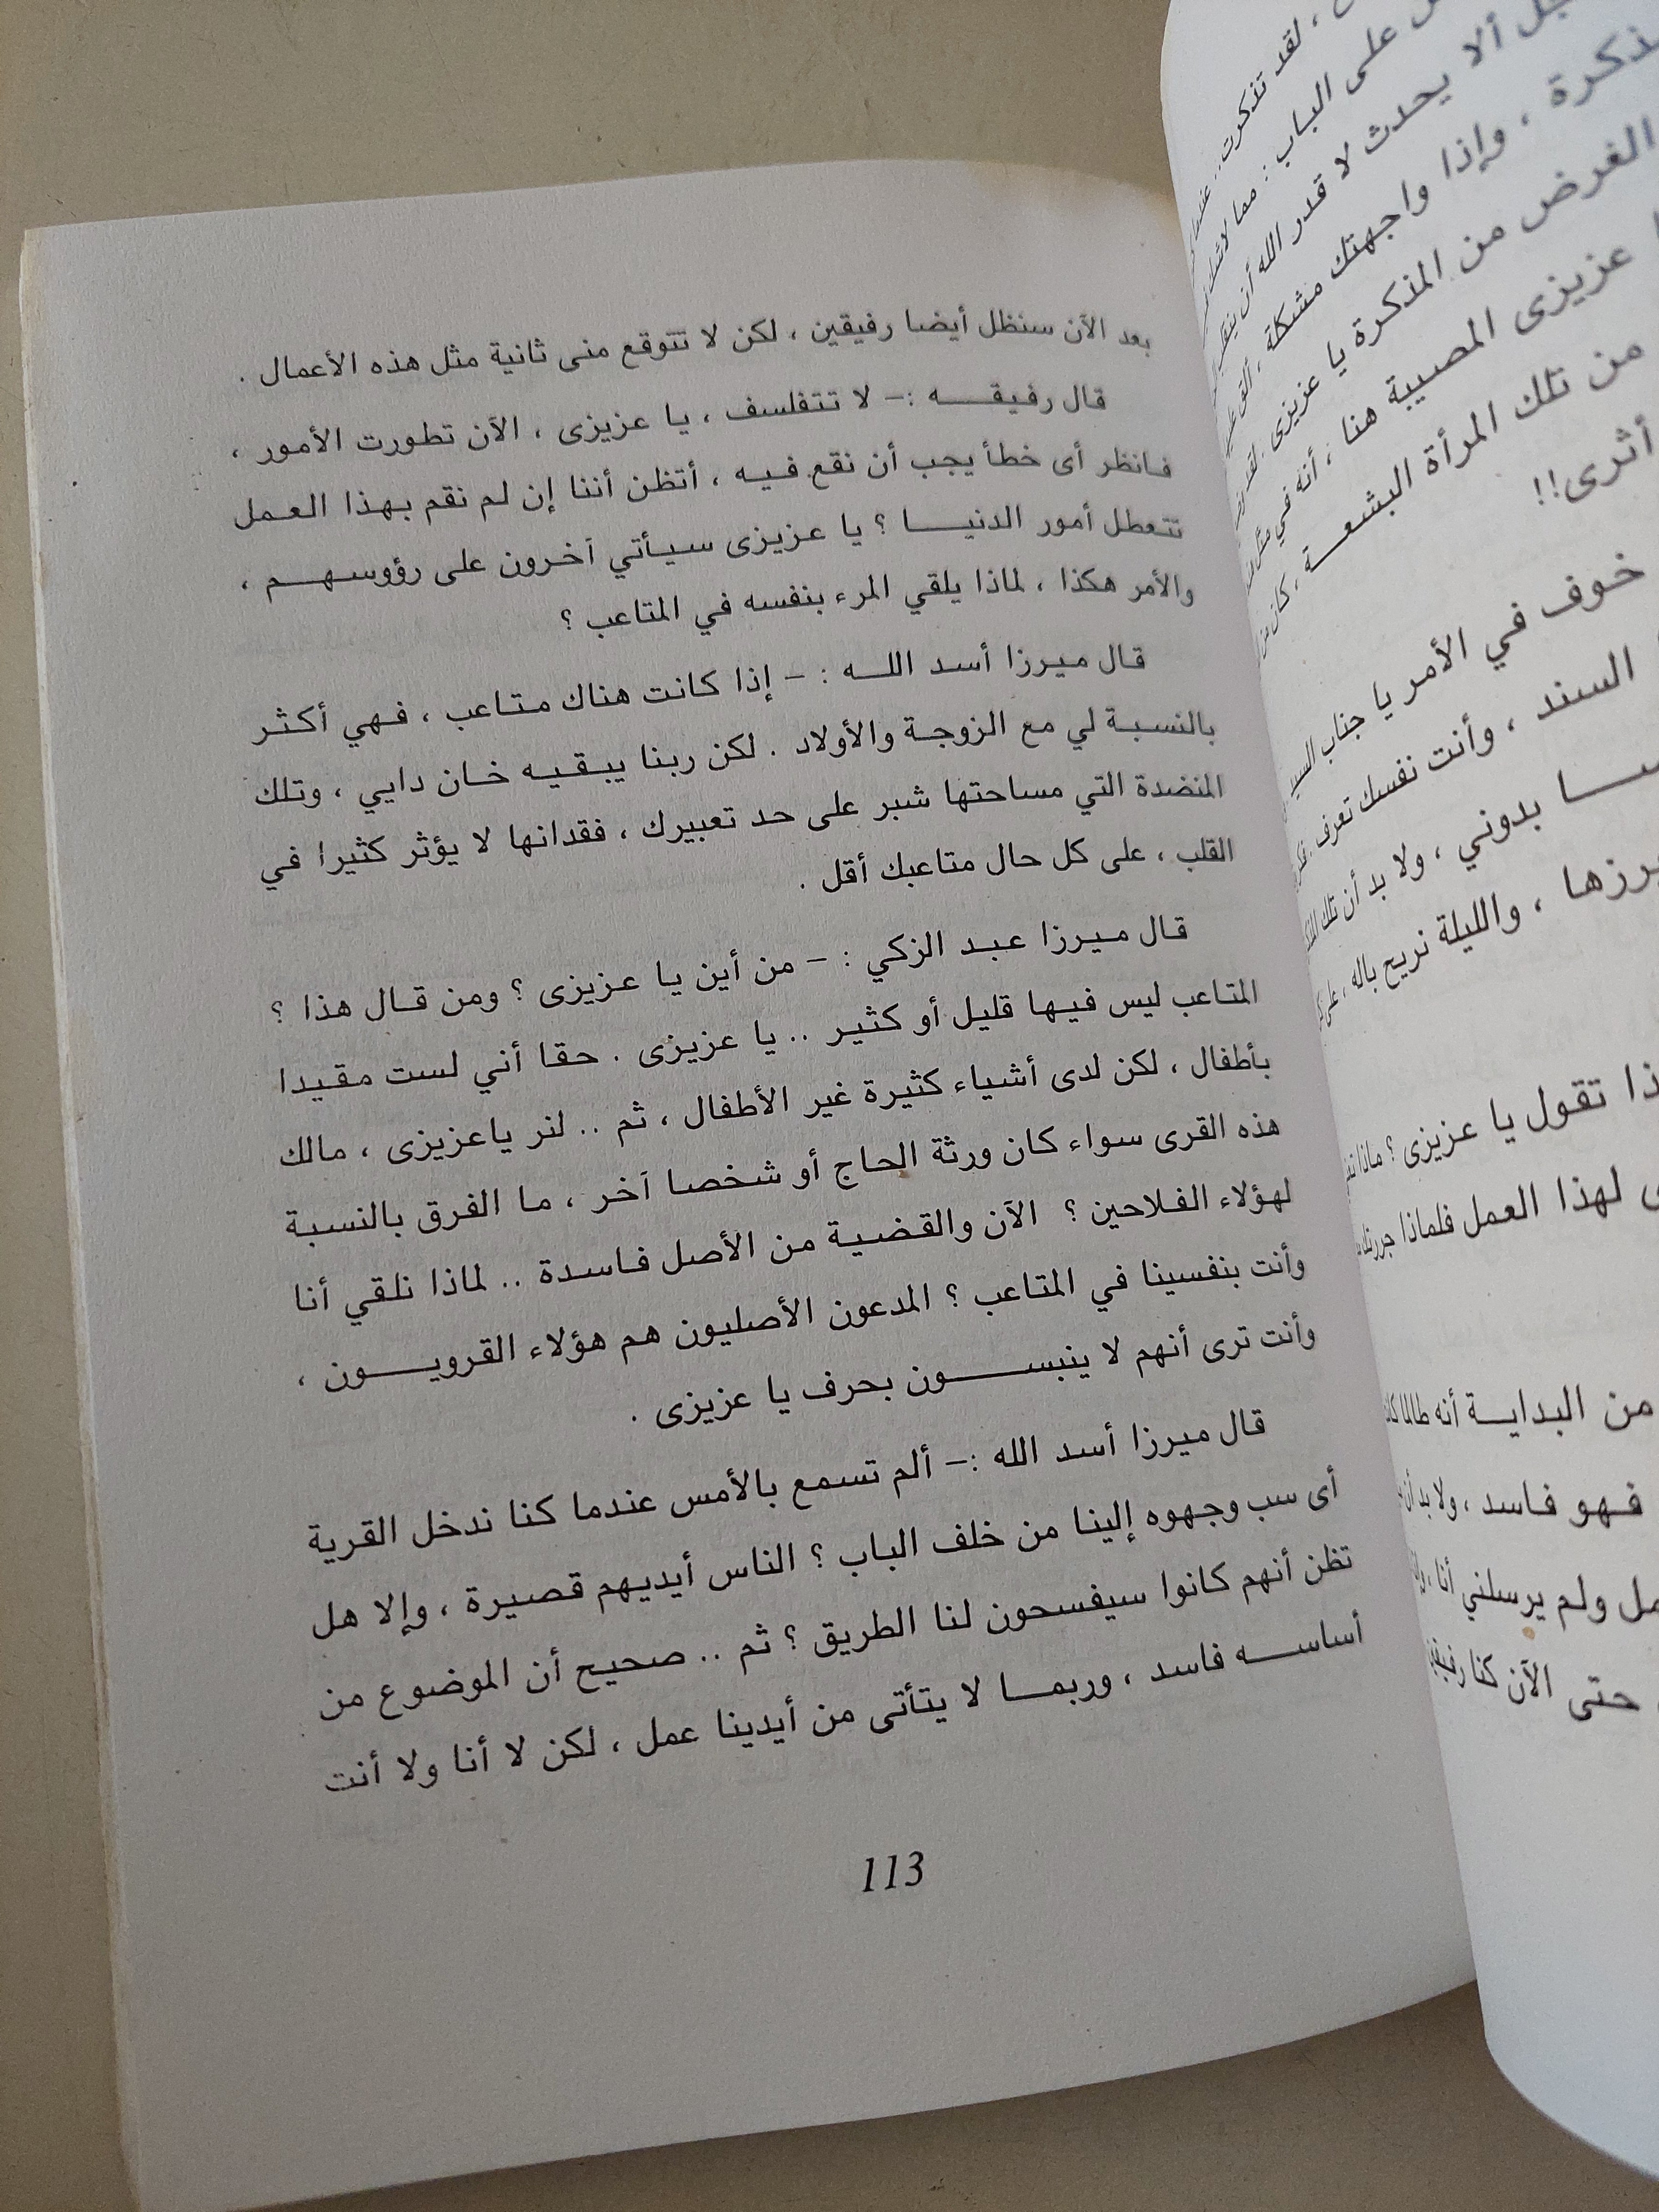 بعد الآن سنظل أيضا رفيقين ، لكن لا تتوقع منى ثانية مثل هذه الأعمال .
قال رفيقه :– لا تتفلسف ، يا عزيزى ، الآن تطورت الأمور ،
فانظر أى خطأ يجب أن نقع فيه ، أتظن أننا إن لم نقم بهذا العمل
تتعطل أمور الدنيا ؟ يا عزيزى سيأتي آخرون على رؤوسهم ،
والأمر هكذا ، لماذا يلقي المرء بنفسه في المتاعب ؟
قال ميرزا أسد الله : – إذا كانت هناك متاعب ، فهي أكثر
بالنسبة لي مع الزوجة والأولاد . لكن ربنا يبقيه خان دايي ، وتلك
المنضدة التي مساحتها شبر على حد تعبيرك ، فقدانها لا يؤثر كثيرا في
القلب ، على كل حال متاعبك أقل .
قال ميرزا عبد الزكي : – من أين يا عزيزى ؟ ومن قال هذا ؟
المتاعب ليس فيها قليل أو كثير .. يا عزيزى . حقا أني لست مقيدا
بأطفال ، لكن لدى أشياء كثيرة غير الأطفال ، ثم .. لنر ياعزيزى ، مالك
هذه القرى سواء كان ورثة الحاج أو شخصا آخر ، ما الفرق بالنسبة
لهؤلاء الفلاحين ؟ الآن والقضية من الأصل فاسدة .. لماذا نلقي أنا
وأنت بنفسينا في المتاعب ؟ المدعون الأصليون هم هؤلاء القرويون ،
وأنت ترى أنهم لا ينبسون بحرف يا عزيزى .
قال ميرزا أسد الله :– ألم تسمع بالأمس عندما كنا ندخل القرية
أى سب وجهوه إلينا من خلف الباب ؟ الناس أيديهم قصيرة ، وإلا هل
تظن أنهم كانوا سيفسحون لنا الطريق ؟ ثم .. صحيح أن الموضوع من
أساسه فاسد ، وربما لا يتأتى من أيدينا عمل ، لكن لا أنا ولا أنت
113
، لقد تذكرت..
على الباب : مما
ألا يحدث لا قدر الله أن
، وإذا واجهتك مشكلة ،
الغرض من المذكرة يا عزيزى .
عزيزى المصيبة هنا ، أنه في مثل
من تلك المرأة البشعة ، كان من
أثرى!!
خوف في الأمر يا جناب
السند ، وأنت نفسك تعرف .
بدوني ، ولا بد أن تلك
، والليلة نريح باله ، على
تقول يا عزيزى ؟ ماذا
لهذا العمل فلماذا
من البداية أنه طالما
فهو فاسد ، ولا بد أن
ولم يرسلني أنا ،
حتى الآن كنا